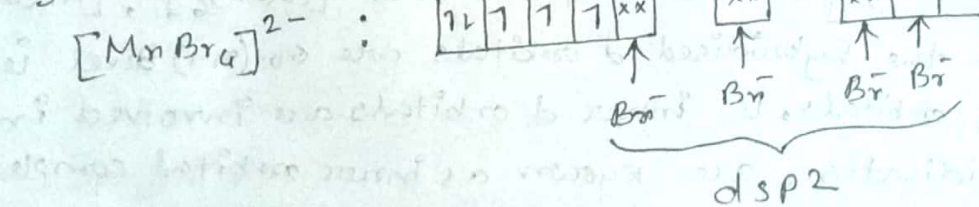 [MnBr4]2- : 1L 1 1 1 xx
Br- Br- Br- Br-
dsp2